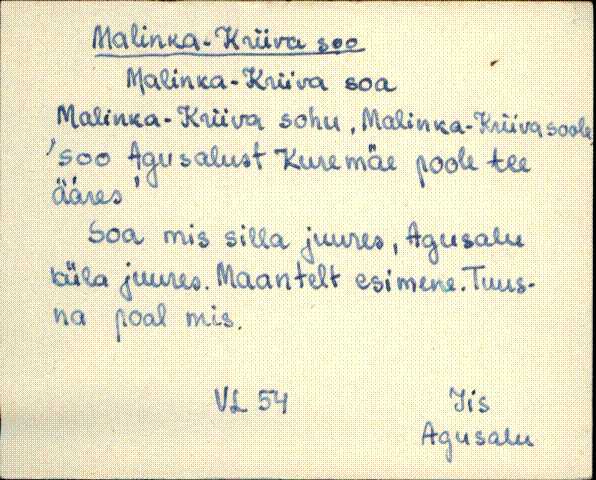 Malinka-Kriiva soo
Malinka-Kriiva soa
Malinka-Kriiva sohu, Malinka-Kriiva soole,
'soo Agusalust Kuremäe poole tee
ääres'
Soa mis silla juures, Agusalu
küla juures. Maantelt esimene. Tuus-
na poal mis.
VL 54
Iis
Agusalu